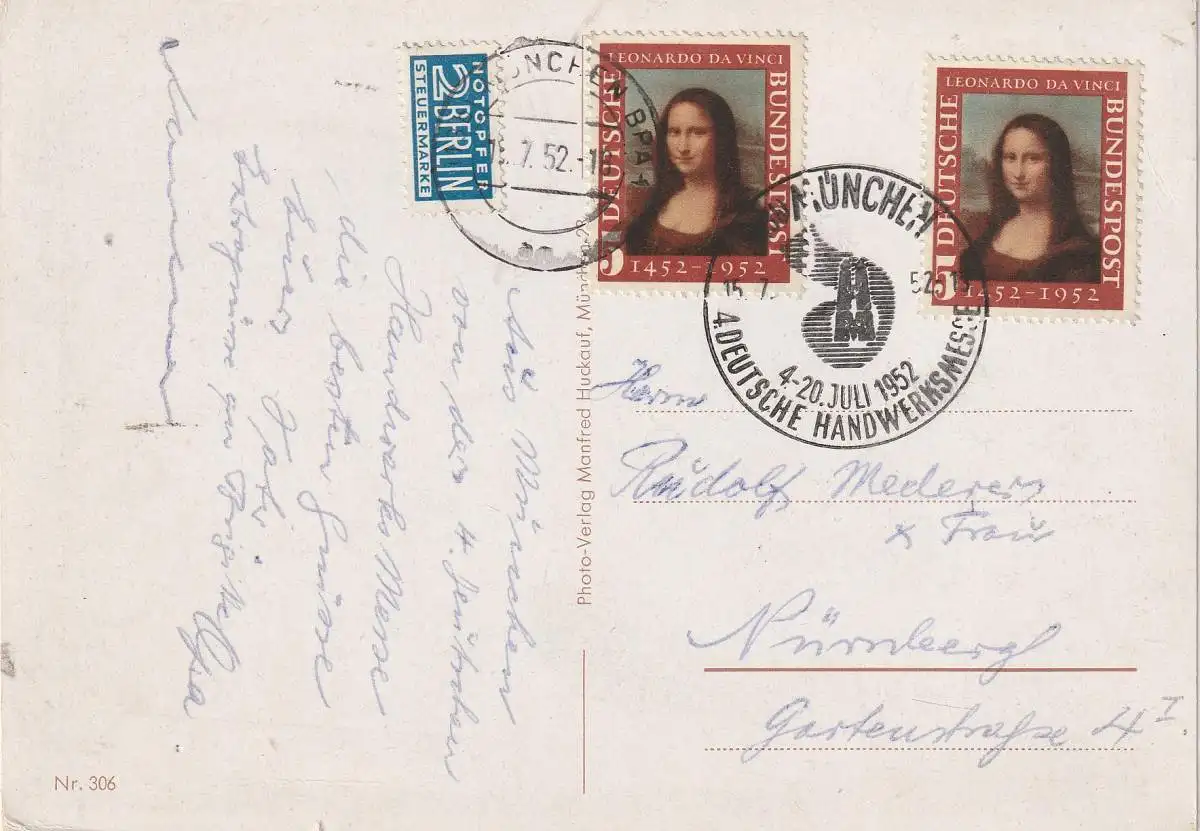 NOTOPFER
2 BERLIN
STEUERMARKE
MÜNCHEN BPA 1
7. 52.-1
LEONARDO DA VINCI
DEUTSCHE
BUNDESPOST
5
1452-1952
LEONARDO DA VINCI
DEUTSCHE
BUNDESPOST
5
1452-1952
MÜNCHEN
15. 7.
52-15
4-20. JULI 1952
4. DEUTSCHE HANDWERKSMESSE
Aus München
von der 4. deutschen
Handwerks Messe
die besten Grüsse
Euer Fritz
Photo-Verlag Manfred Huckauf, München-23
Herrn
Rudolf Mederer
& Frau
Nürnberg
Gartenstraße 4 I
Nr. 306